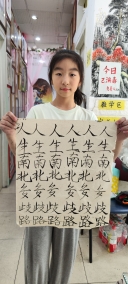 人生南北多歧路
人生南北多歧路
人生南北多歧路
人生南北多歧路
人生南北多歧路
人生南北多歧路
今日
已消毒
教学区